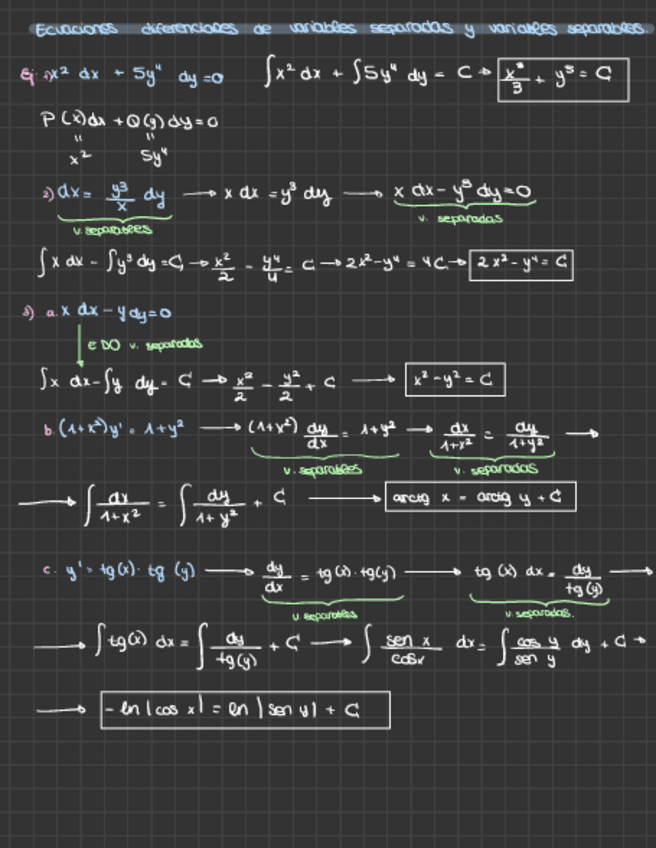 Ecuaciones diferenciales de variables separadas y variables separables.
Ej: 1) x² dx + 5y⁴ dy = 0 ∫x² dx + ∫5y⁴ dy = C → x³/3 + y⁵ = C
P(x)dx + Q(y)dy = 0
" "
x² 5y⁴
2) dx = y³/x dy → x dx = y³ dy → x dx - y³ dy = 0
v. separables v. separadas
∫x dx - ∫y³ dy = C → x²/2 - y⁴/4 = C → 2x² - y⁴ = 4C → 2x² - y⁴ = C
3) a. x dx - y dy = 0
EDO v. separadas
∫x dx - ∫y dy = C → x²/2 - y²/2 + C → x² - y² = C
b. (1+x²)y' = 1+y² → (1+x²) dy/dx = 1+y² → dx/1+x² = dy/1+y² →
v. separables v. separadas
→ ∫ dx/1+x² = ∫ dy/1+y² + C → arctg x = arctg y + C
c. y' = tg(x)·tg(y) → dy/dx = tg(x)·tg(y) → tg(x) dx = dy/tg(y) →
v. separables v. separadas.
→ ∫tg(x) dx = ∫ dy/tg(y) + C → ∫ sen x/cos x dx = ∫ cos y/sen y dy + C →
→ - ln |cos x| = ln |sen y| + C